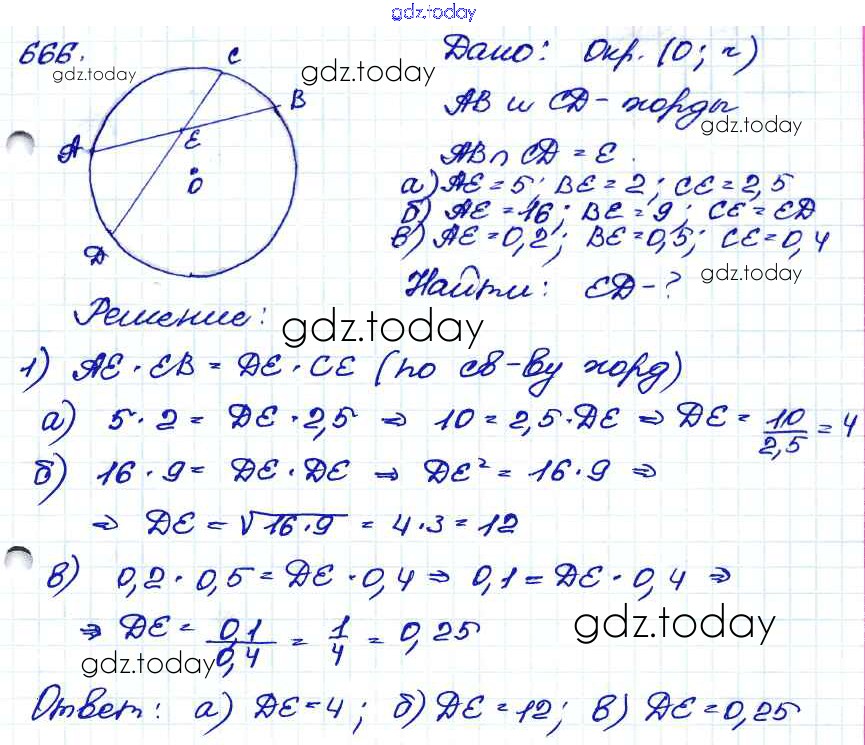 gdz.today
666.
gdz.today
C
B
A
E
O
D
gdz.today
Дано: Окр. (O; r)
AB и CD - хорды
gdz.today
AB ∩ CD = E.
а) AE = 5; BE = 2; CE = 2,5
б) AE = 16; BE = 9; CE = ED
в) AE = 0,2; BE = 0,5; CE = 0,4
Найти: ED - ?
gdz.today
Решение:
gdz.today
1) AE · EB = DE · CE (по св-ву хорд)
а) 5 · 2 = DE · 2,5 ⇒ 10 = 2,5 · DE ⇒ DE = 10/2,5 = 4
б) 16 · 9 = DE · DE ⇒ DE² = 16 · 9 ⇒
⇒ DE = √16·9 = 4·3 = 12
в) 0,2 · 0,5 = DE · 0,4 ⇒ 0,1 = DE · 0,4 ⇒
⇒ DE = 0,1/0,4 = 1/4 = 0,25
gdz.today
gdz.today
Ответ: а) DE = 4; б) DE = 12; в) DE = 0,25